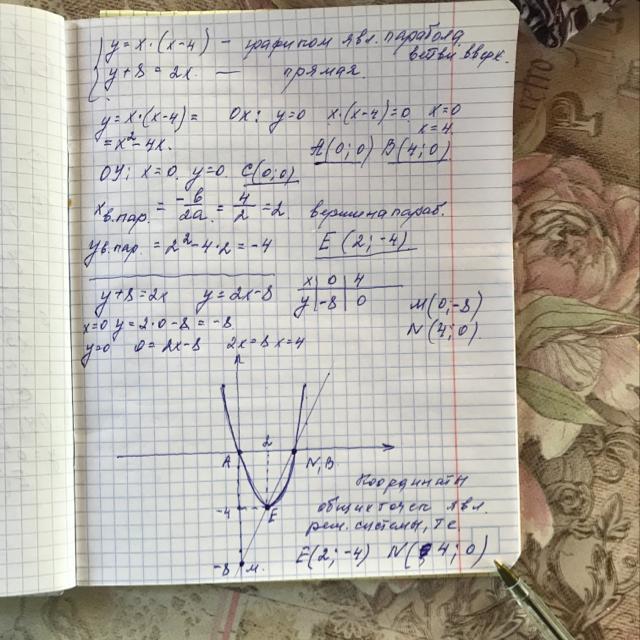 y = x·(x-4) – графиком явл. парабола,
ветви вверх.
y + 8 = 2x. — прямая.
y = x·(x-4) = Ox: y=0 x·(x-4)=0 x=0
x=4
= x²-4x. A(0;0) B(4;0)
OY: x=0, y=0 C(0;0)
x в.пар. = -b/2a = 4/2 = 2 вершина параб.
y в.пар. = 2²-4·2 = -4 E (2; -4)
y+8=2x y=2x-8 x 0 4
y -8 0
x=0 y=2·0-8=-8 M(0;-8)
y=0 0=2x-8 2x=8 x=4 N(4;0).
2
A N,B
-4 E
-8 M.
Координаты
общих точек явл
реш. системы, т.е
E(2; -4) N(4; 0)